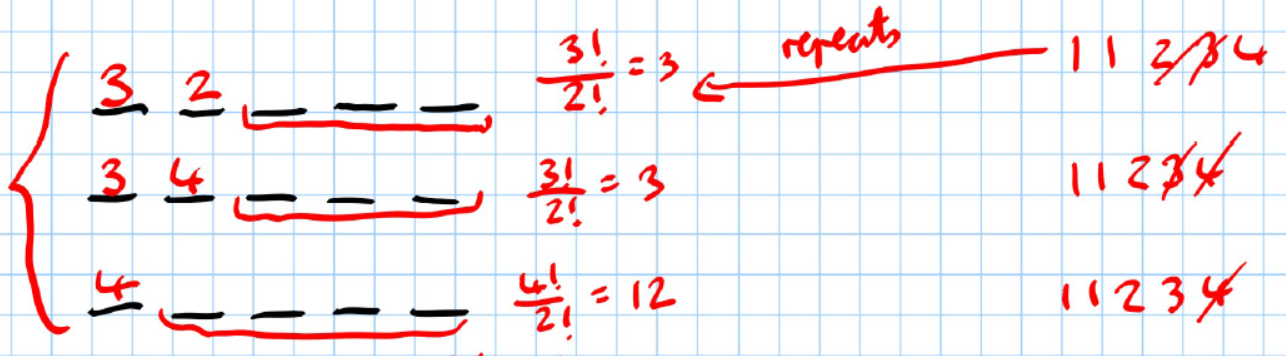 3 2 _ _ _ 3!/2! = 3 repeats 1 1 2 3 4
3 4 _ _ _ 3!/2! = 3 1 1 2 3 4
4 _ _ _ _ 4!/2! = 12 1 1 2 3 4